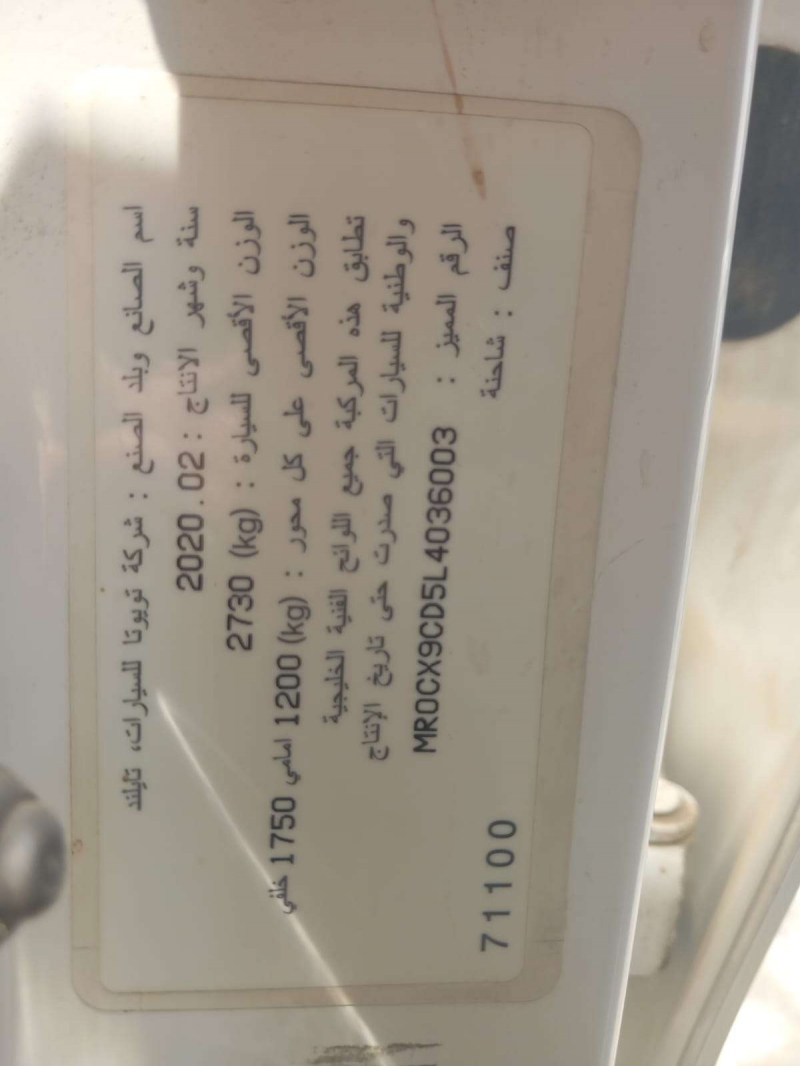 اسم الصانع وبلد الصنع : شركة تويوتا للسيارات، تايلند
سنة وشهر الانتاج : 2020.02
الوزن الأقصى للسيارة : 2730 (kg)
الوزن الأقصى على كل محور : 1200 (kg) امامي 1750 خلفي
تطابق هذه المركبة جميع اللوائح الفنية الخليجية
والوطنية للسيارات التي صدرت حتى تاريخ الإنتاج
الرقم المميز : MR0CX9CD5L4036003
صنف : شاحنة
71100